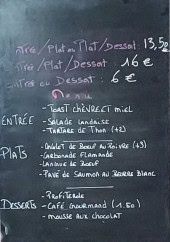 Entrée/Plat ou Plat/Dessert: 13,50
Entrée/Plat/Dessert: 16€
Entrée ou Dessert: 6€
Menu
ENTRÉE - Toast chèvre et miel
- Salade landaise
- Tartare de Thon (+2)
PLATS - Onglet de Boeuf au Poivre (+3)
- Carbonade Flamande
- Langue de Boeuf
- Pavé de Saumon au Beurre Blanc
DESSERTS - Profiterole
- Café Gourmand (1.50)
- mousse aux chocolat